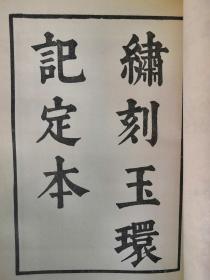 繡刻玉環
記定本